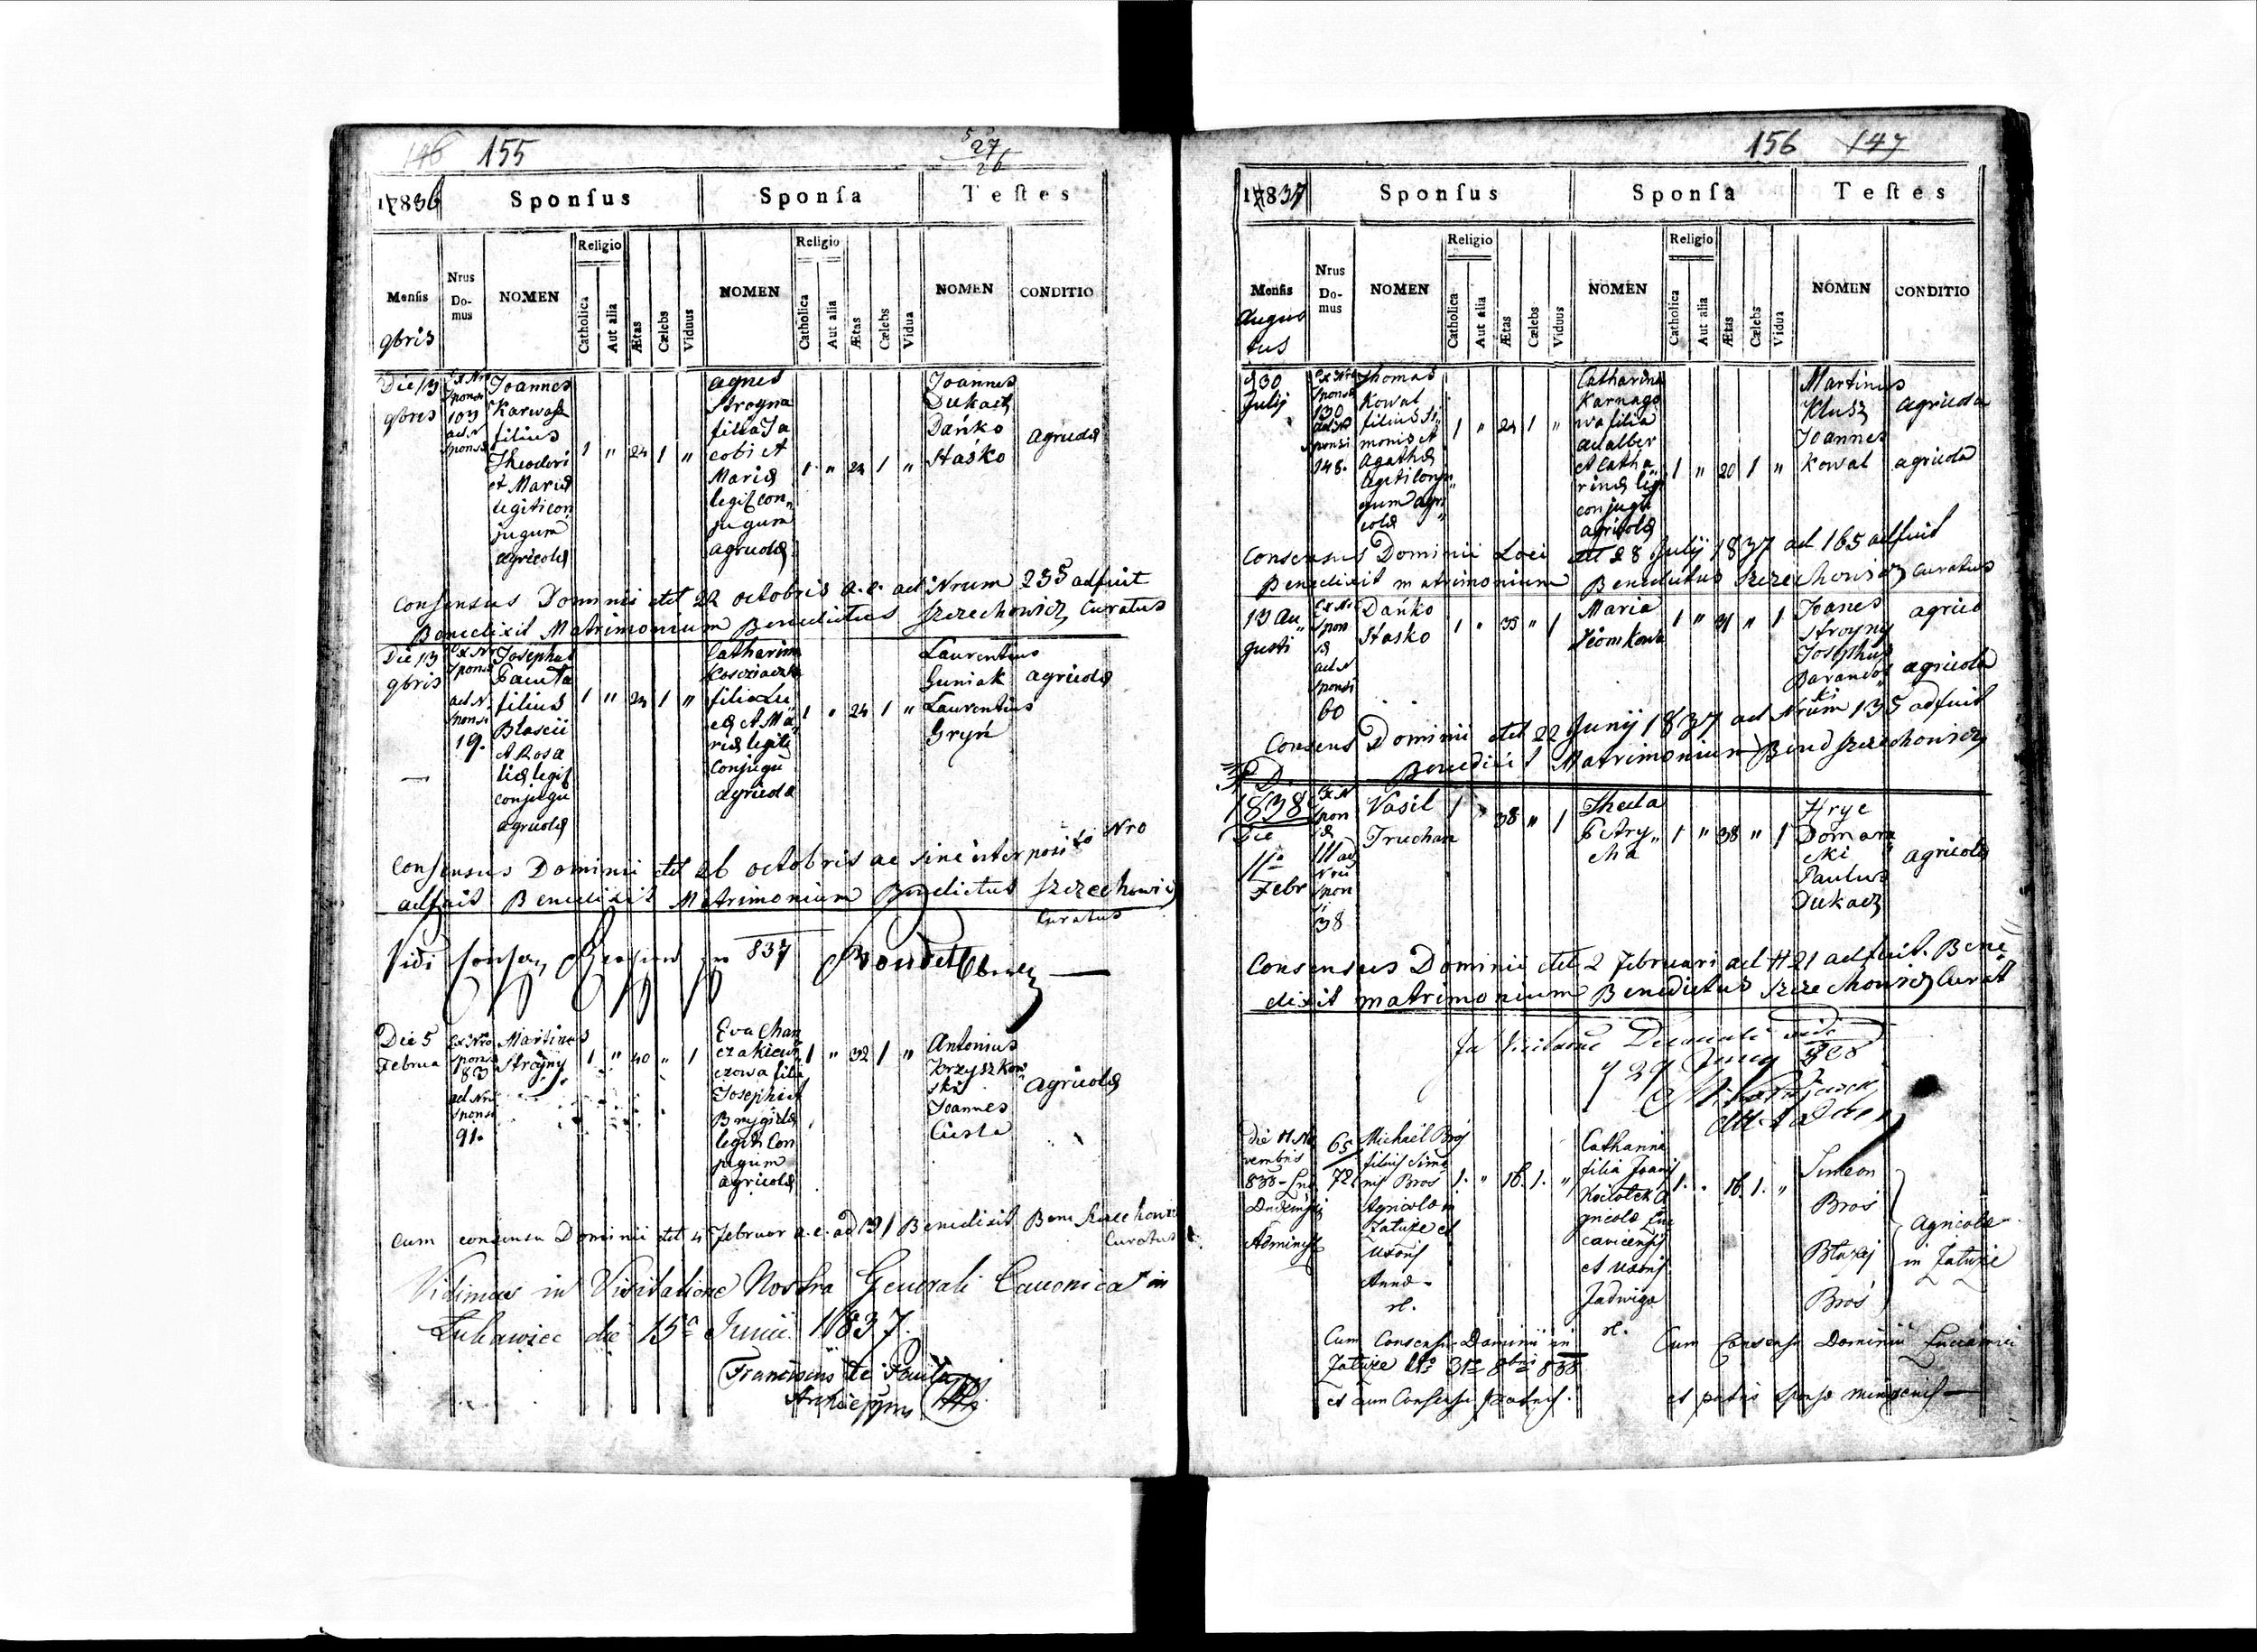 146 155
5 27
26
17836 Sponſus Sponſa Teſtes
Menſis
9bris
Nrus Do-mus
NOMEN
Religio
Catholica
Aut alia
Ætas
Cælebs
Viduus
NOMEN
Religio
Catholica
Aut alia
Ætas
Cælebs
Vidua
NOMEN
CONDITIO
Die 13
9bris
Ex Nro
Sponsæ
103
ad N
Sponsi
Joannes
Karwas
filius
Theodori
et Mariæ
legiti con
jugum
agricolæ
1 " 24 1 "
agnes
Stroyna
filia Ja
cobi et
Mariæ
legit con„
jugum
agricolæ
1 " 24 1 "
Joannes
Dukacz
Dańko
Staśko
agricolæ
Consensus Dominii ddt 22 octobris a. c. ad Nrum 235 adfuit
Benedixit Matrimonium Benedictus Szrechowicz Curatus
Die 13
9bris
Ex Nr
Sponsæ
ad N
Sponsi
19.
Josephus
filius
Błascii
et Rosa
liæ legit
conjugu
agricolæ
1 " 24 1 "
Catharina
filia Lu
cæ et Ma
riæ legiti
Conjugu
agricola
1 " 24 1 "
Laurentius
Guniak
Laurentius
Gryń
agricolæ
Consensus Dominii ddt 26 octobris ac sine interposito Nro
adfuit Benedixit Matrimonium Benedictus Szrechowicz
Curatus
Vidi 837
Die 5
Februa
Ex Nro
Sponsæ
83
ad Nru
Sponsi
91.
Martinus
Stroyny
1 " 40 " 1
Eva Chan
filia
Josephi et
Brygidæ
legiti Con
jugum
agricolæ
1 " 32 1 "
Antonius
Krzyszkow
ski
Joannes
Cieśla
agricolæ
Cum consensu Dominii ddt 4 Februar a. c. ad 131 Benedixit Bene Szrechowicz
Curatus
Vidimus in Visitatione Nostra Generali Canonica in
Łukawiec die 15a Junii 1837.
Franciscus de Paula
Archieppus
156 147
17837 Sponſus Sponſa Teſtes
Menſis
Augus
tus
Nrus Do-mus
NOMEN
Religio
Catholica
Aut alia
Ætas
Cælebs
Viduus
NOMEN
Religio
Catholica
Aut alia
Ætas
Cælebs
Vidua
NOMEN
CONDITIO
d 30
Julij
Ex Nro
Sponsæ
130
ad N
Sponsi
148.
Thomas
Kowal
filius Si„
monis et
Agathæ
legiti conju„
gum agri„
colæ
1 " 24 1 "
Catharina
Karnago
wa filia
adalber
et Catha
rinæ leg
conjugu
agricolæ
1 " 20 1 "
Martinus
Klusz
Joannes
Kowal
agricola
agricola
Consensus Dominii Loci dd 28 Julij 1837 ad 165 adfuit
Benedixit matrimonium Benedictus Szrechowicz Curatus
13 Au„
gusti
Ex N
Spon
sæ
ad N
Sponsi
60
Dańko
Stasko
1 " 35 " 1
Maria
1 " 31 " 1
Joanes
Stroyny
Josephus
Baranow
ski
agrico
agricola
Consens Dominii ddt 22 Junij 1837 ad Nrum 135 adfuit
Benedixit Matrimonium Bened Szrechowicz
1838
Die
11a
Febr
Ex N
Spon
sæ
111 ad
Nru
Spon
si
38
Vasil
Truchan
1 " 38 " 1
Thecla
Petry„
cha
1 " 38 " 1
Hryc
Doman
ski
Paulus
Dukacz
agricolæ
Consensus Dominii ddt 2 Februari ad N 21 adfuit. Bene
dixit matrimonium Benedictus Szrechowicz Curat
In Visitatione Decanali vidi
29 Juny 838
Die 11 No
vembris
838
Adminis
65
72
Michaël Broś
filius Simo
nis Broś
Agricolæ in
Załuże et
Uxoris
Annæ
rl.
1. " 18. 1. "
Catharina
filia Joanis
Kociołek a
gricolæ Łu
cavicensis
et uxoris
Jadwiga
rl.
1. " 18. 1. "
Simeon
Broś
Błażej
Broś
Agricolæ
in Załuże
Cum Consensu Dominii in
Załuże dto 31a 8bris 838
et cum Consensu patris.
Cum Consensu Dominii Luccavici
et patris sponsæ minorenis